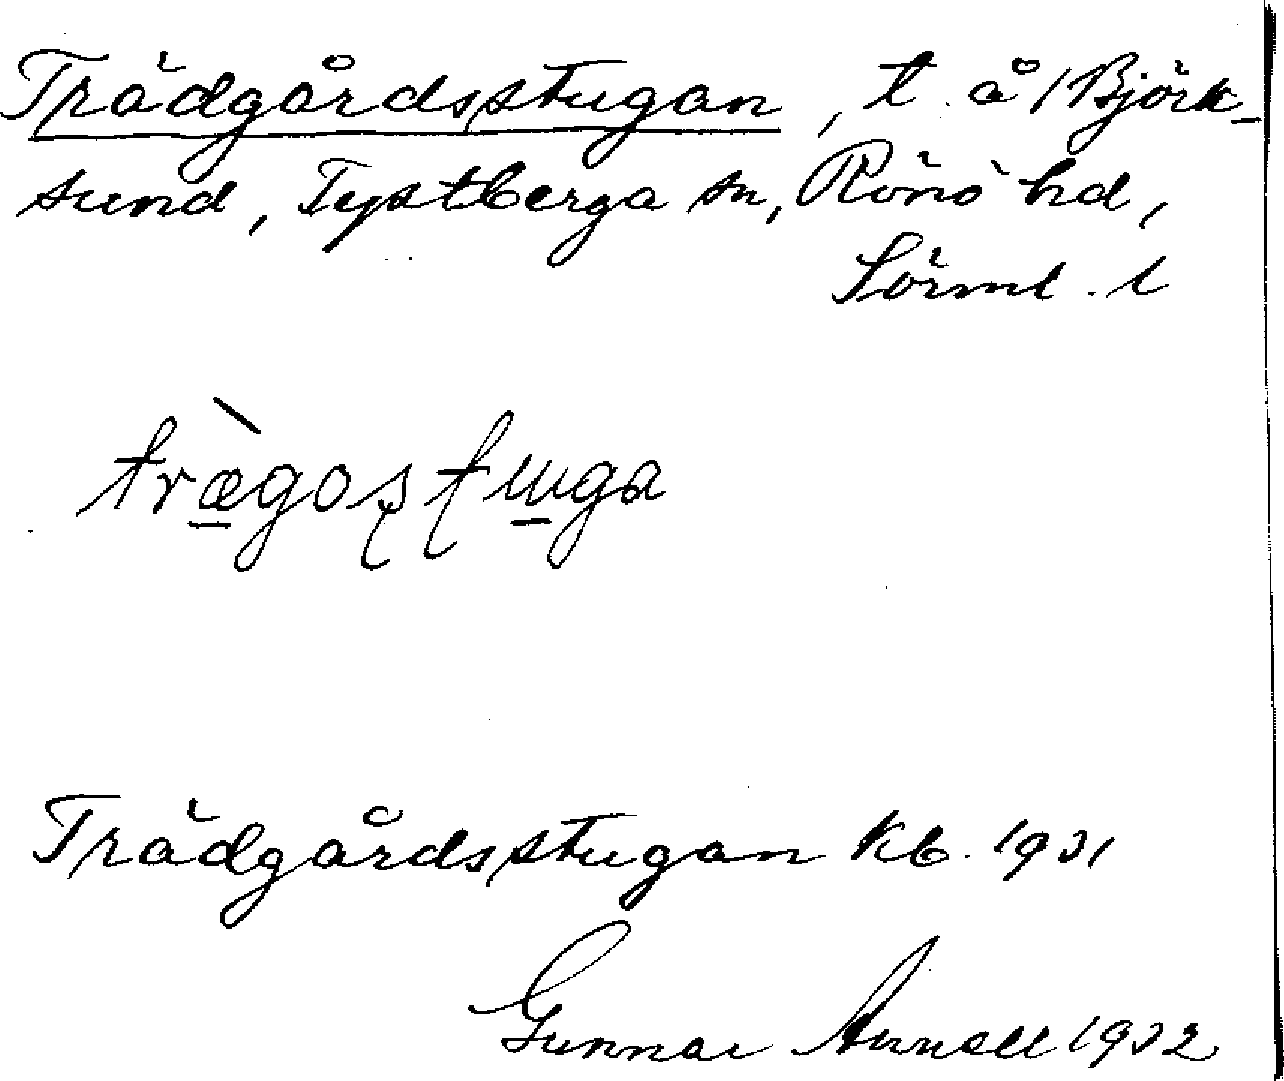 Trädgårdsstugan, t. å/Björk-
sund, Tystberga sn, Rönö hd,
Sörml. l
Trädgårdsstugan Kb. 1931
Gunnar 1932